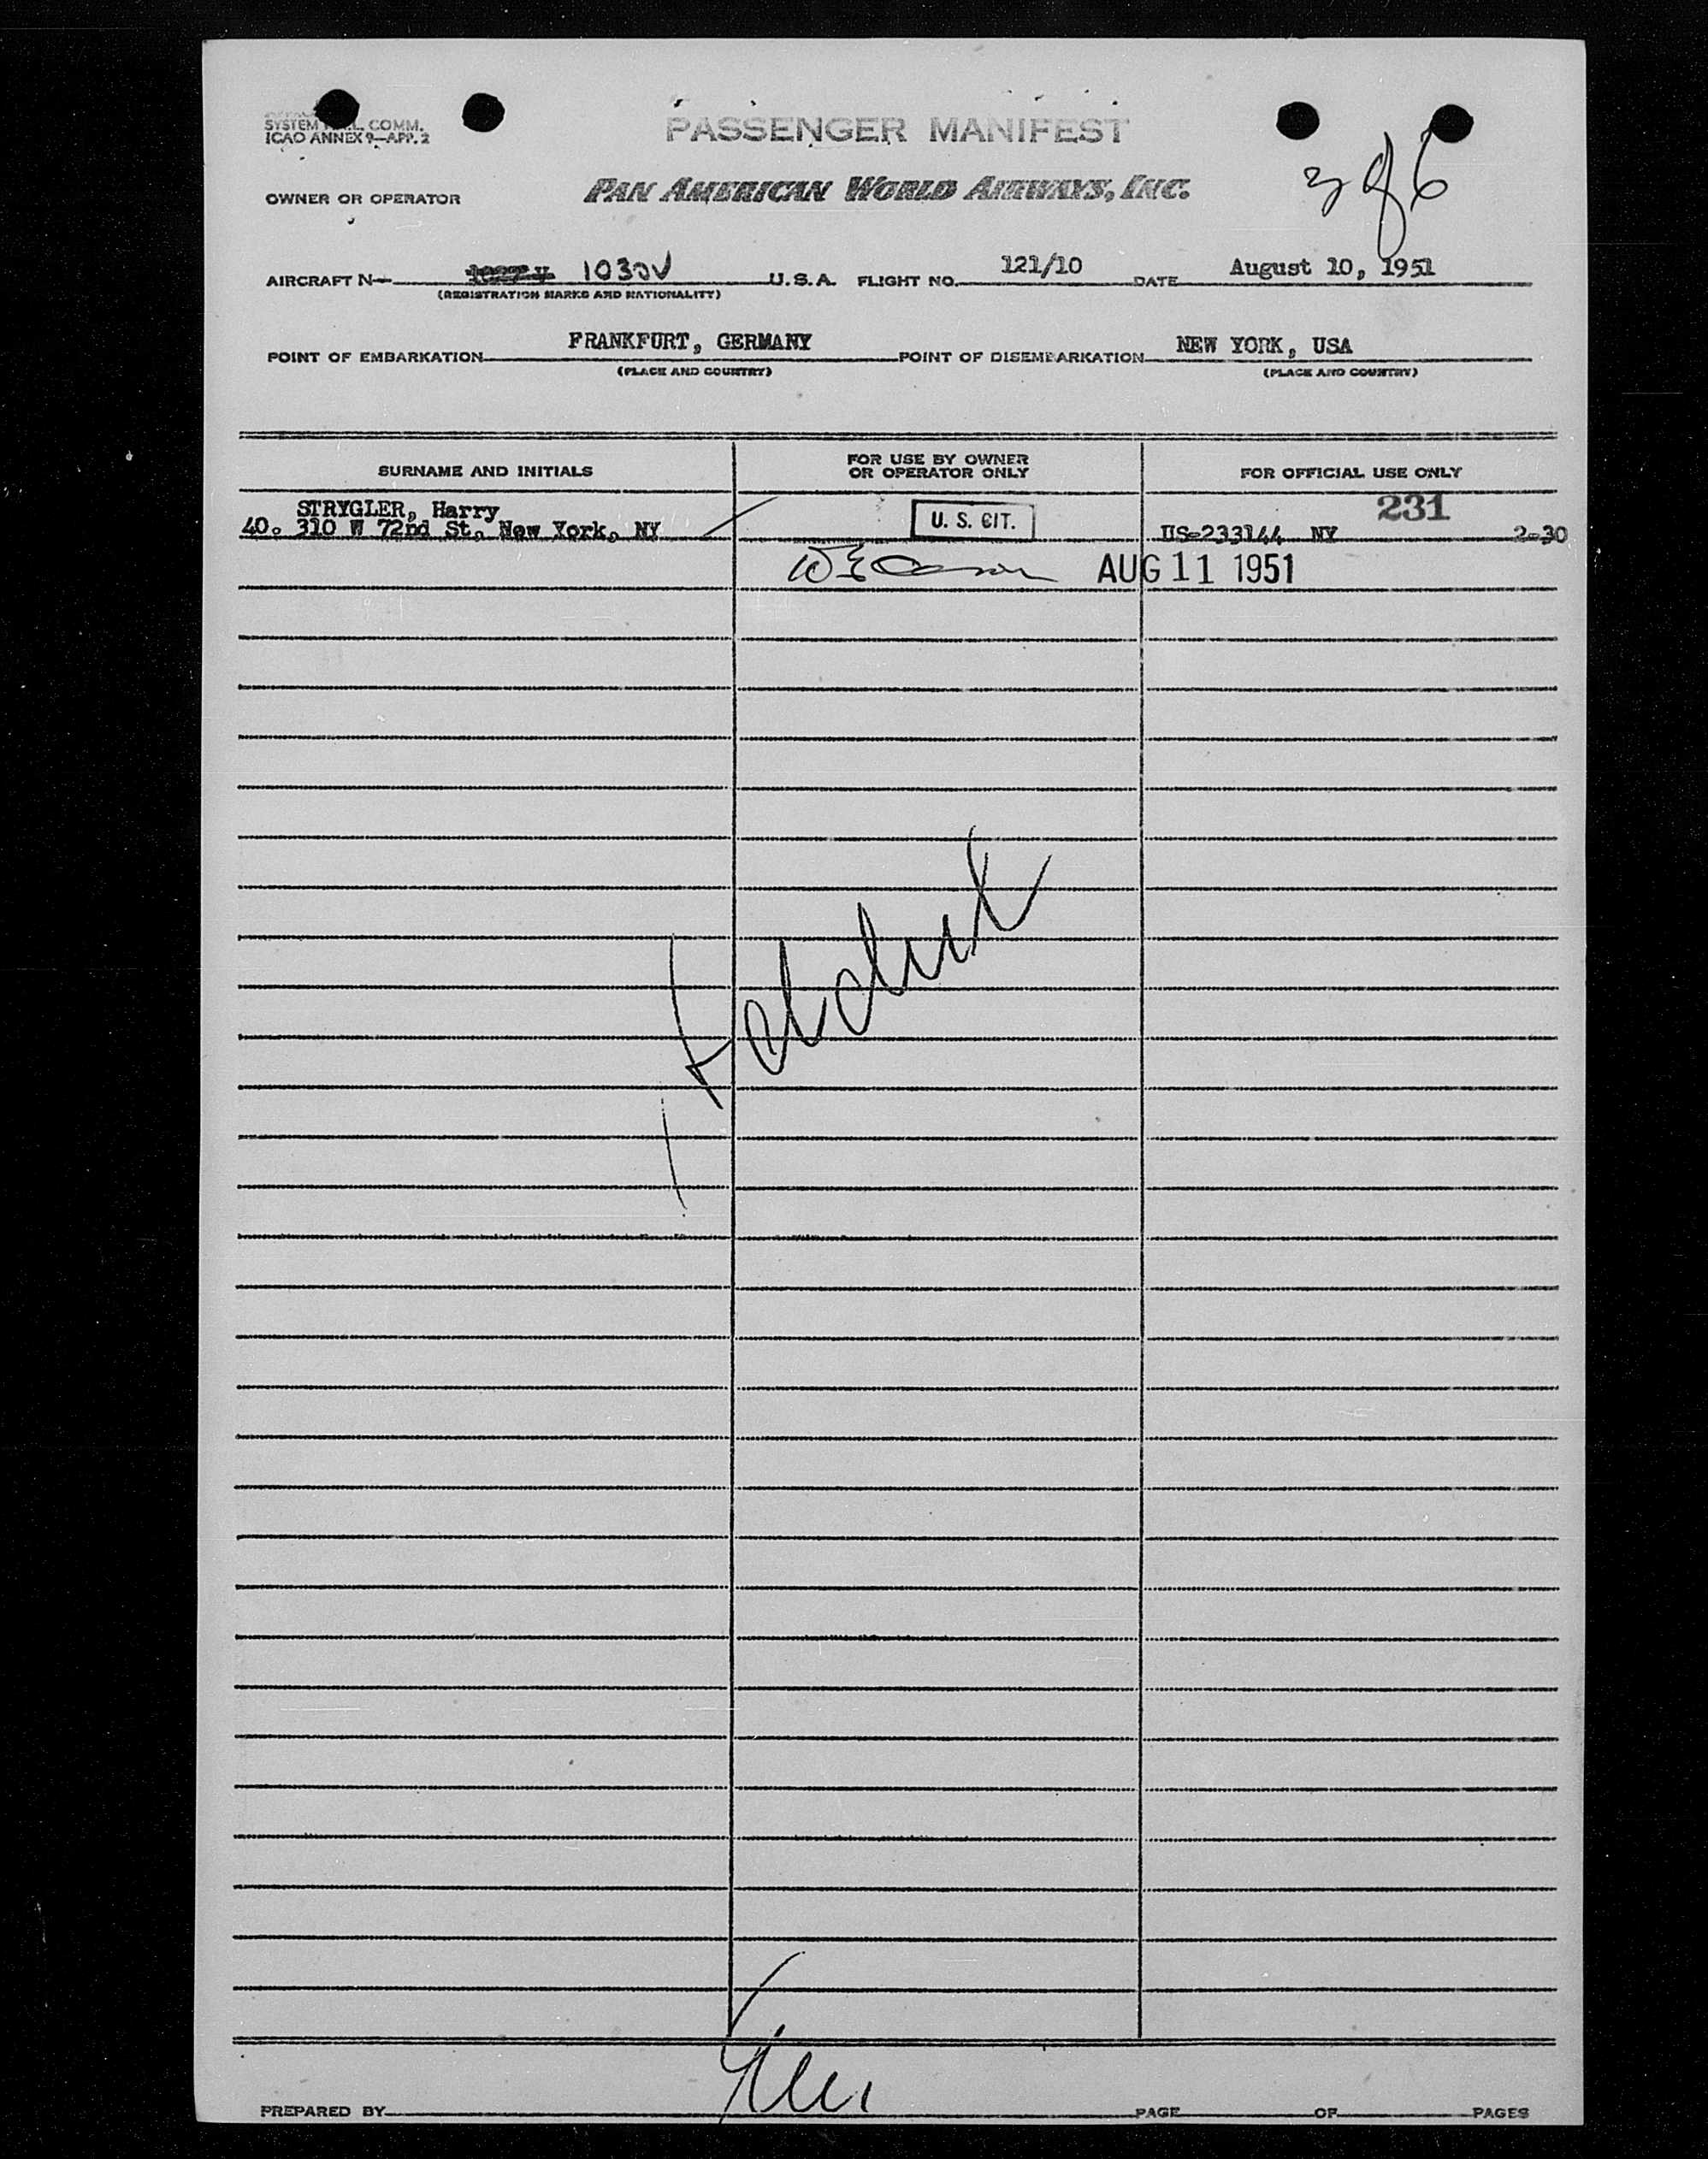 SYSTEM COMM.
ICAO ANNEX 9-APP. 2
PASSENGER MANIFEST
3 of 6
OWNER OR OPERATOR
PAN AMERICAN WORLD AIRWAYS, INC.
AIRCRAFT N 1030V U.S.A. FLIGHT NO. 121/10 DATE August 10, 1951
(REGISTRATION MARKS AND NATIONALITY)
POINT OF EMBARKATION FRANKFURT, GERMANY POINT OF DISEMBARKATION NEW YORK, USA
(PLACE AND COUNTRY) (PLACE AND COUNTRY)
SURNAME AND INITIALS
FOR USE BY OWNER
OR OPERATOR ONLY
FOR OFFICIAL USE ONLY
231
STRYGLER, Harry
40. 310 W 72nd St, New York, NY
U. S. CIT.
US-233144 NY 2-30
AUG 11 1951
PREPARED BY PAGE OF PAGES